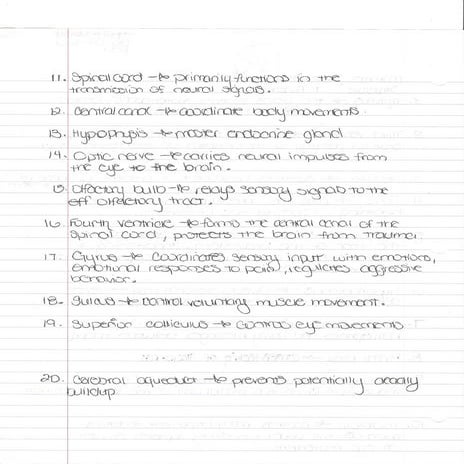 11. Spinal cord → primarily functions in the
transmission of neural signals.
12. Central canal → coordinate body movements.
13. Hypophysis → master endocrine gland
14. Optic nerve → carries neural impulses from
the eye to the brain.
15. Olfactory bulb → relays sensory signals to the
olfactory tract.
16. Fourth ventricle → forms the central canal of the
spinal cord, protects the brain from trauma.
17. Gyrus → coordinates sensory input with emotions,
emotional responses to pain, regulates aggressive
behavior.
18. Sulcus → control voluntary muscle movement.
19. Superior colliculus → control eye movements
20. Cerebral aqueduct → prevents potentially
buildup